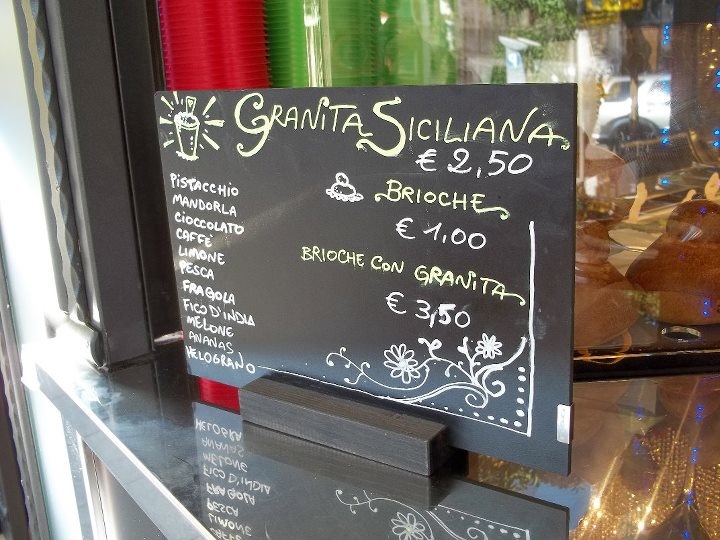 GRANITA SICILIANA
€ 2,50
PISTACCHIO
MANDORLA
CIOCCOLATO
CAFFÈ
LIMONE
PESCA
FRAGOLA
FICO D'INDIA
MELONE
ANANAS
MELOGRANO
BRIOCHE
€ 1,00
BRIOCHE CON GRANITA
€ 3,50